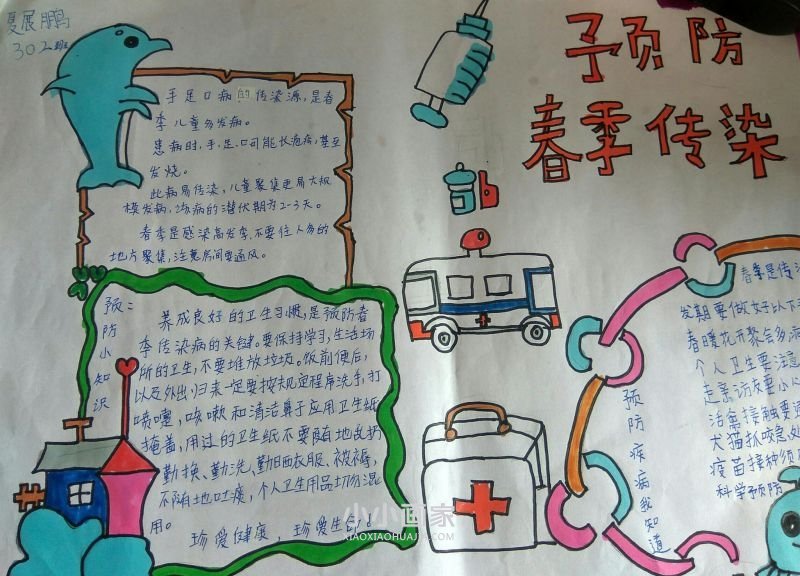 夏展鹏
302班
预防
春季传染
手足口病的传染源,是春
季儿童多发病。
患病时,手、足、口可能长疱疹,甚至
发烧。
此病易传染,儿童聚集更易大规
模发病,该病的潜伏期为2-3天。
春季是感染高发季,不要往人多的
地方聚集,注意房间要通风。
预防小知识
养成良好的卫生习惯,是预防春
季传染病的关键。要保持学习,生活场
所的卫生,不要堆放垃圾。饭前便后,
以及外出归来一定要按规定程序洗手,打
喷嚏,咳嗽和清洁鼻子应用卫生纸
掩盖,用过的卫生纸不要随地乱扔
勤换、勤洗、勤晒衣服、被褥,
不随地吐痰,个人卫生用品切勿混
用。
珍爱健康,珍爱生命。
春季是传
发期要做好以下
春暖花开聚会多
个人卫生要注意
走亲访友要小
活禽接触要
犬猫抓咬急
疫苗接种须
科学预防
预防疾病我知道
小小画家
XIAOXIAOHUAJIA.COM